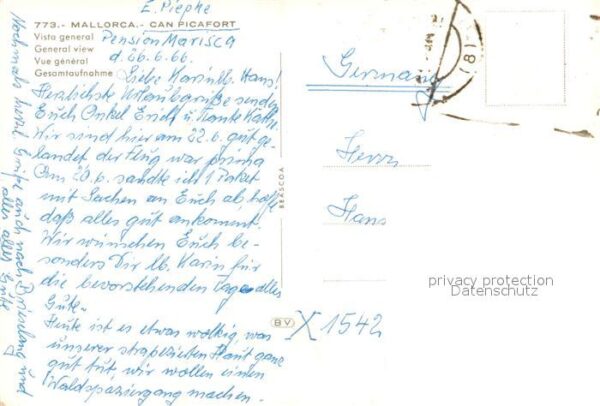 E. Piepke
773.- MALLORCA.- CAN PICAFORT
Vista general
General view
Vue général
Gesamtaufnahme
Pension Marisca
d. 26.6.66.
Liebe Karin u. lb. Hans!
Herzlichste Urlaubsgrüße senden
Euch Onkel Erich u. Tante Käthe.
Wir sind hier am 22.6. gut ge-
landet der Flug war prima
Am 20.6. sandte ich 1 Paket
mit Sachen an Euch ab hoffe
daß alles gut ankommt.
Wir wünschen Euch be-
sonders Dir lb. Karin für
die bevorstehenden Tage alles
Gute.
Heute ist es etwas wolkig, was
unserer strapezierten Haut ganz
gut tut, wir wollen einen
Waldspaziergang machen.
Nochmals herzl. Grüße auch nach und
alles alles Gute
BEASCOA
BV
X 1542
Germany
(81)
Herrn
Hans
privacy protection
Datenschutz